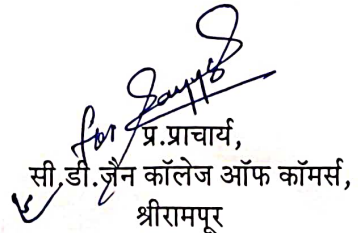 for
प्र.प्राचार्य,
सी.डी.जैन कॉलेज ऑफ कॉमर्स,
श्रीरामपूर